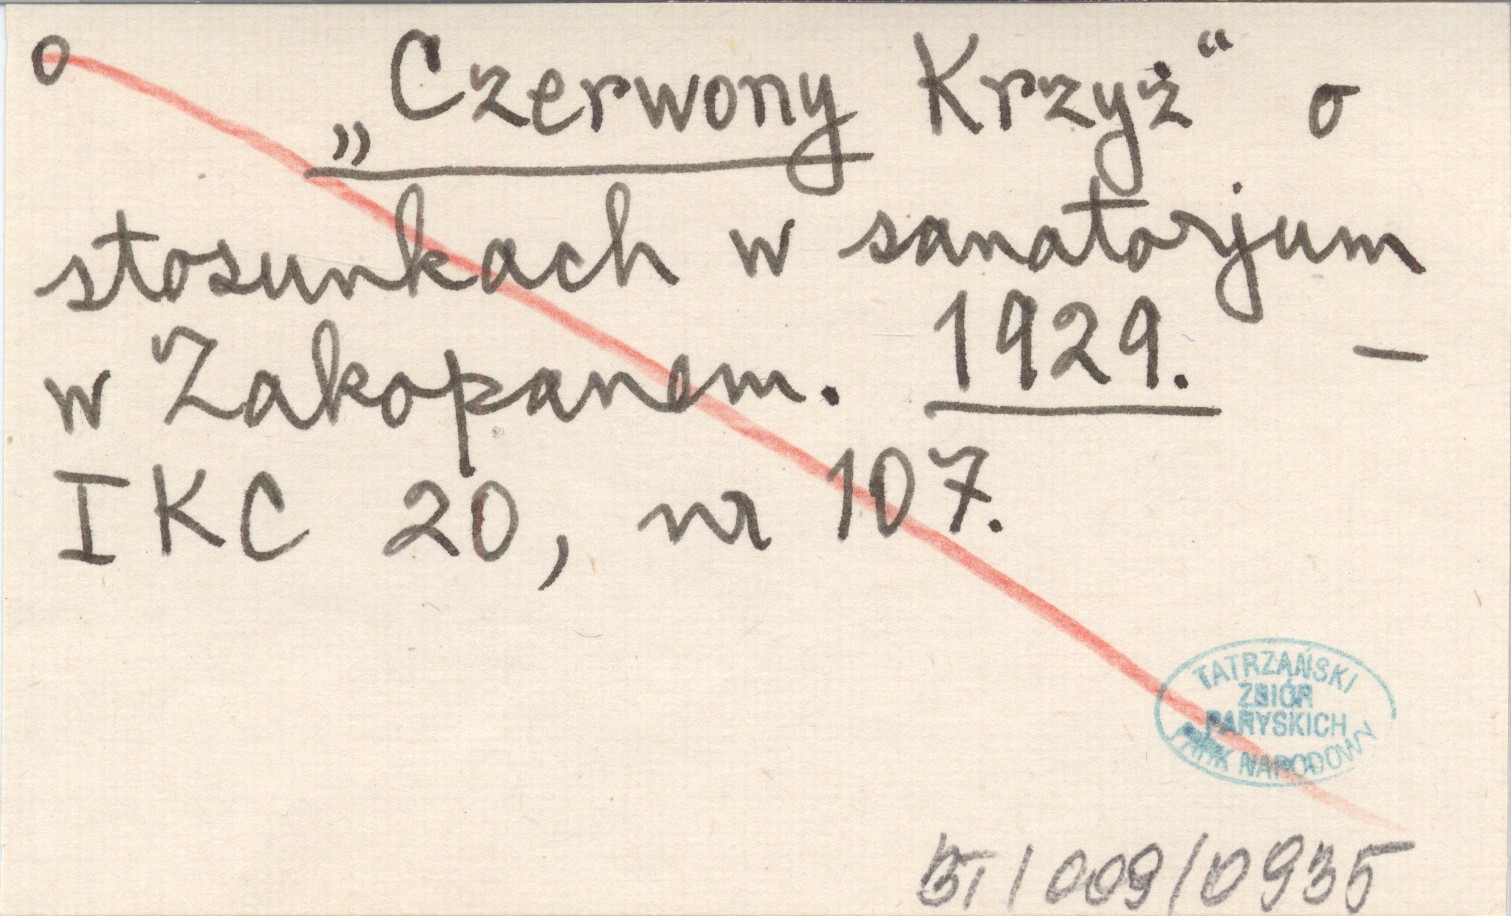 o „Czerwony Krzyż“ o
stosunkach w sanatorjum
w Zakopanem. 1929. —
IKC 20, nr 107.
TATRZAŃSKI
ZBIÓR
PARYSKICH
PARK NARODOWY
/009/0935